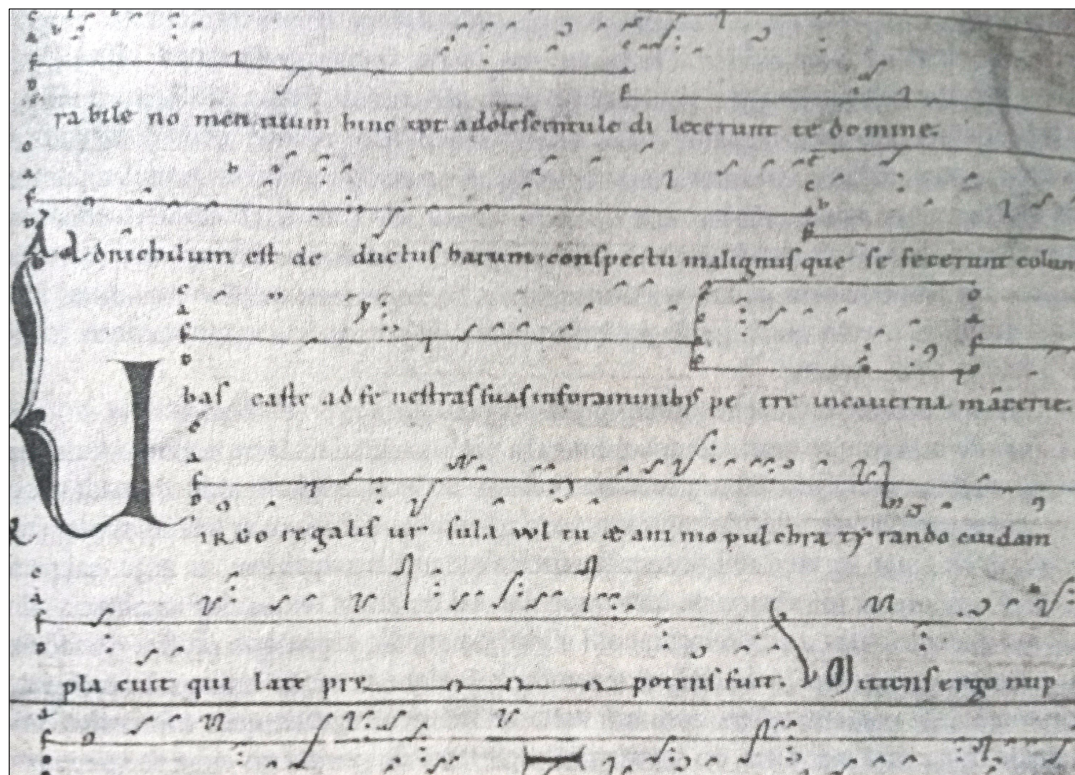 rabile no men tuum hinc xpe adolescentule di lexerunt te domine.
Ad dnichilum est de ductus harum conspectu malignus que se fecerunt colum
bas caste ad fe nestras suas in foraminibus pe tre in caverna macerie.
VIRGO regalis ur sula vul tu & ani mo pul chra ty rando cuidam
pla cuit qui late pre potens fuit. Mittens ergo nup